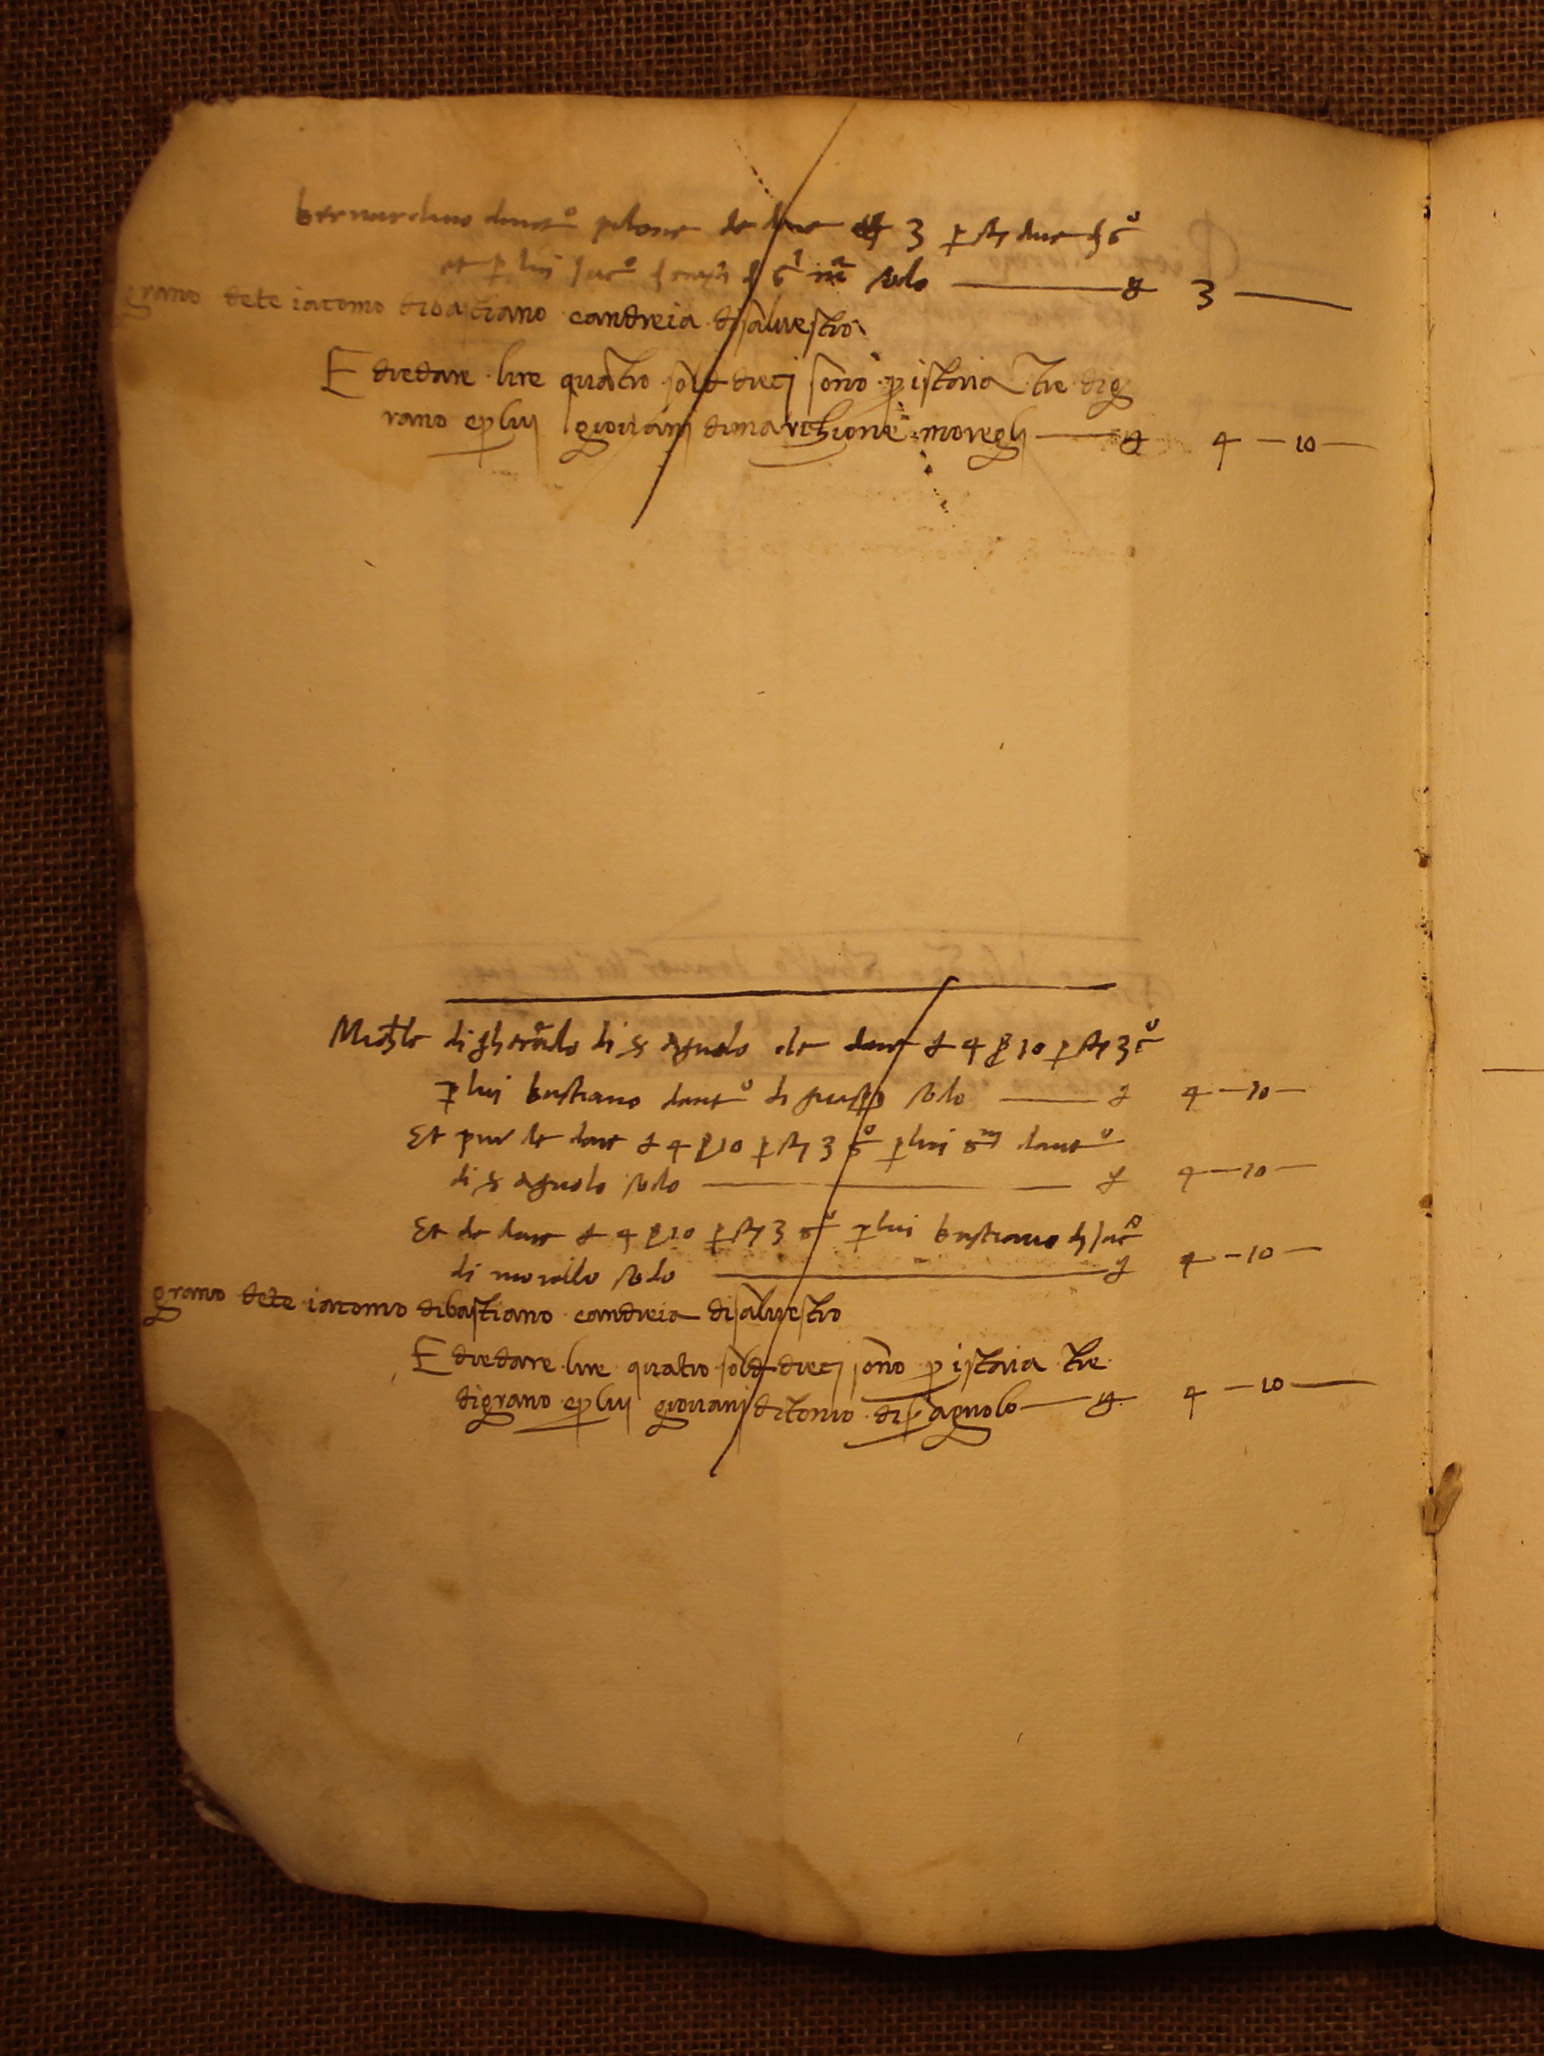 bernardino dant° pilone de dare 3 p st due
et p lui Jac° solo 3
grano dete iacomo dibastiano eandreia disalvestro
E diedare lire quatro sold dieci sono p istaia tre dig
rano ep lui giovani dimarchione moregli 4 — 10 —
Michele di gherardo di s agnolo de dare 4 10 p st 3
p lui bastiano dant° di solo 4 — 10 —
Et piu de dare 4 10 p st 3 p lui dant°
di s agnolo solo 4 — 10 —
Et de dare 4 10 p st 3 p lui bastiano di Jac°
di morello solo 4 — 10 —
grano dete iacomo dibastiano eandreia disalvestro
E diedare lire quatro sold dieci sono p istaia tre
digrano ep lui giovani ditonio di s agnolo 4 — 10 —